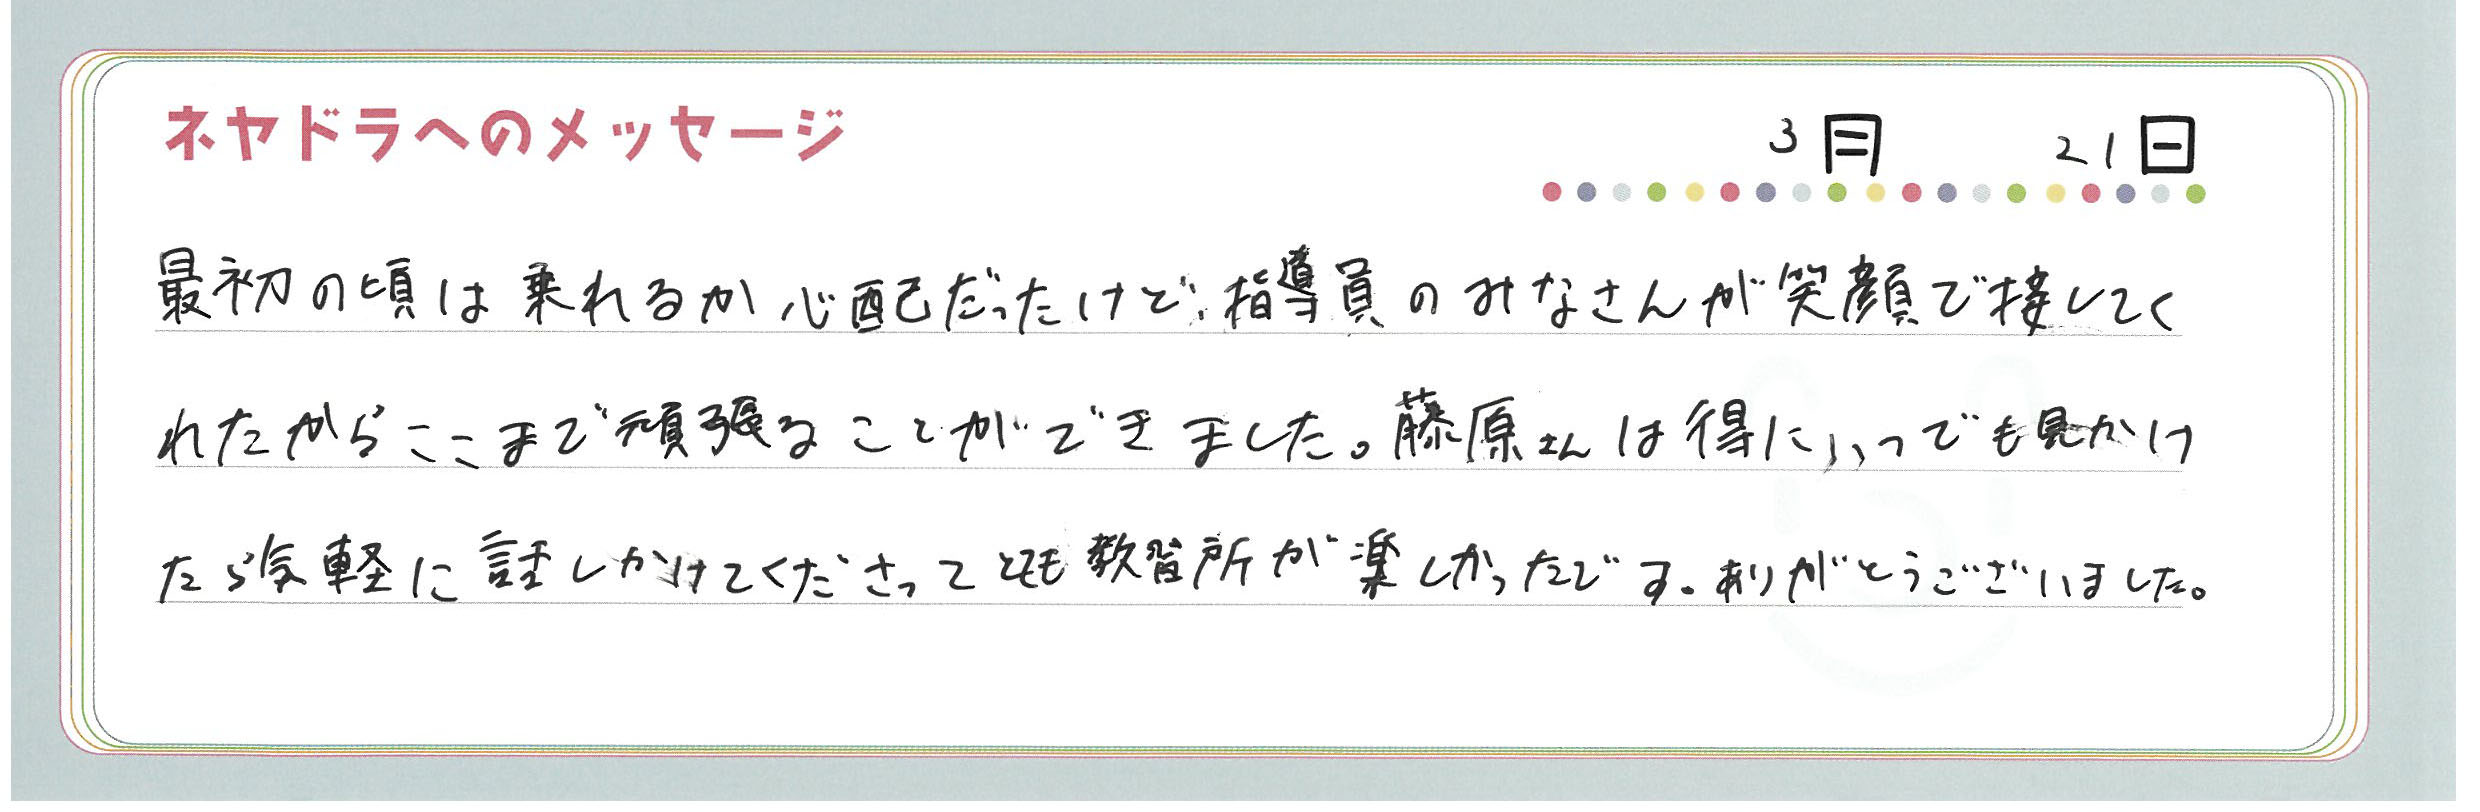 ネヤドラへのメッセージ
3月 21日
最初の頃は乗れるか心配だったけど、指導員のみなさんが笑顔で接してく
れたからここまで頑張ることができました。藤原さんは得にいつでも見かけ
たら気軽に話しかけてくださってとても教習所が楽しかったです。ありがとうございました。